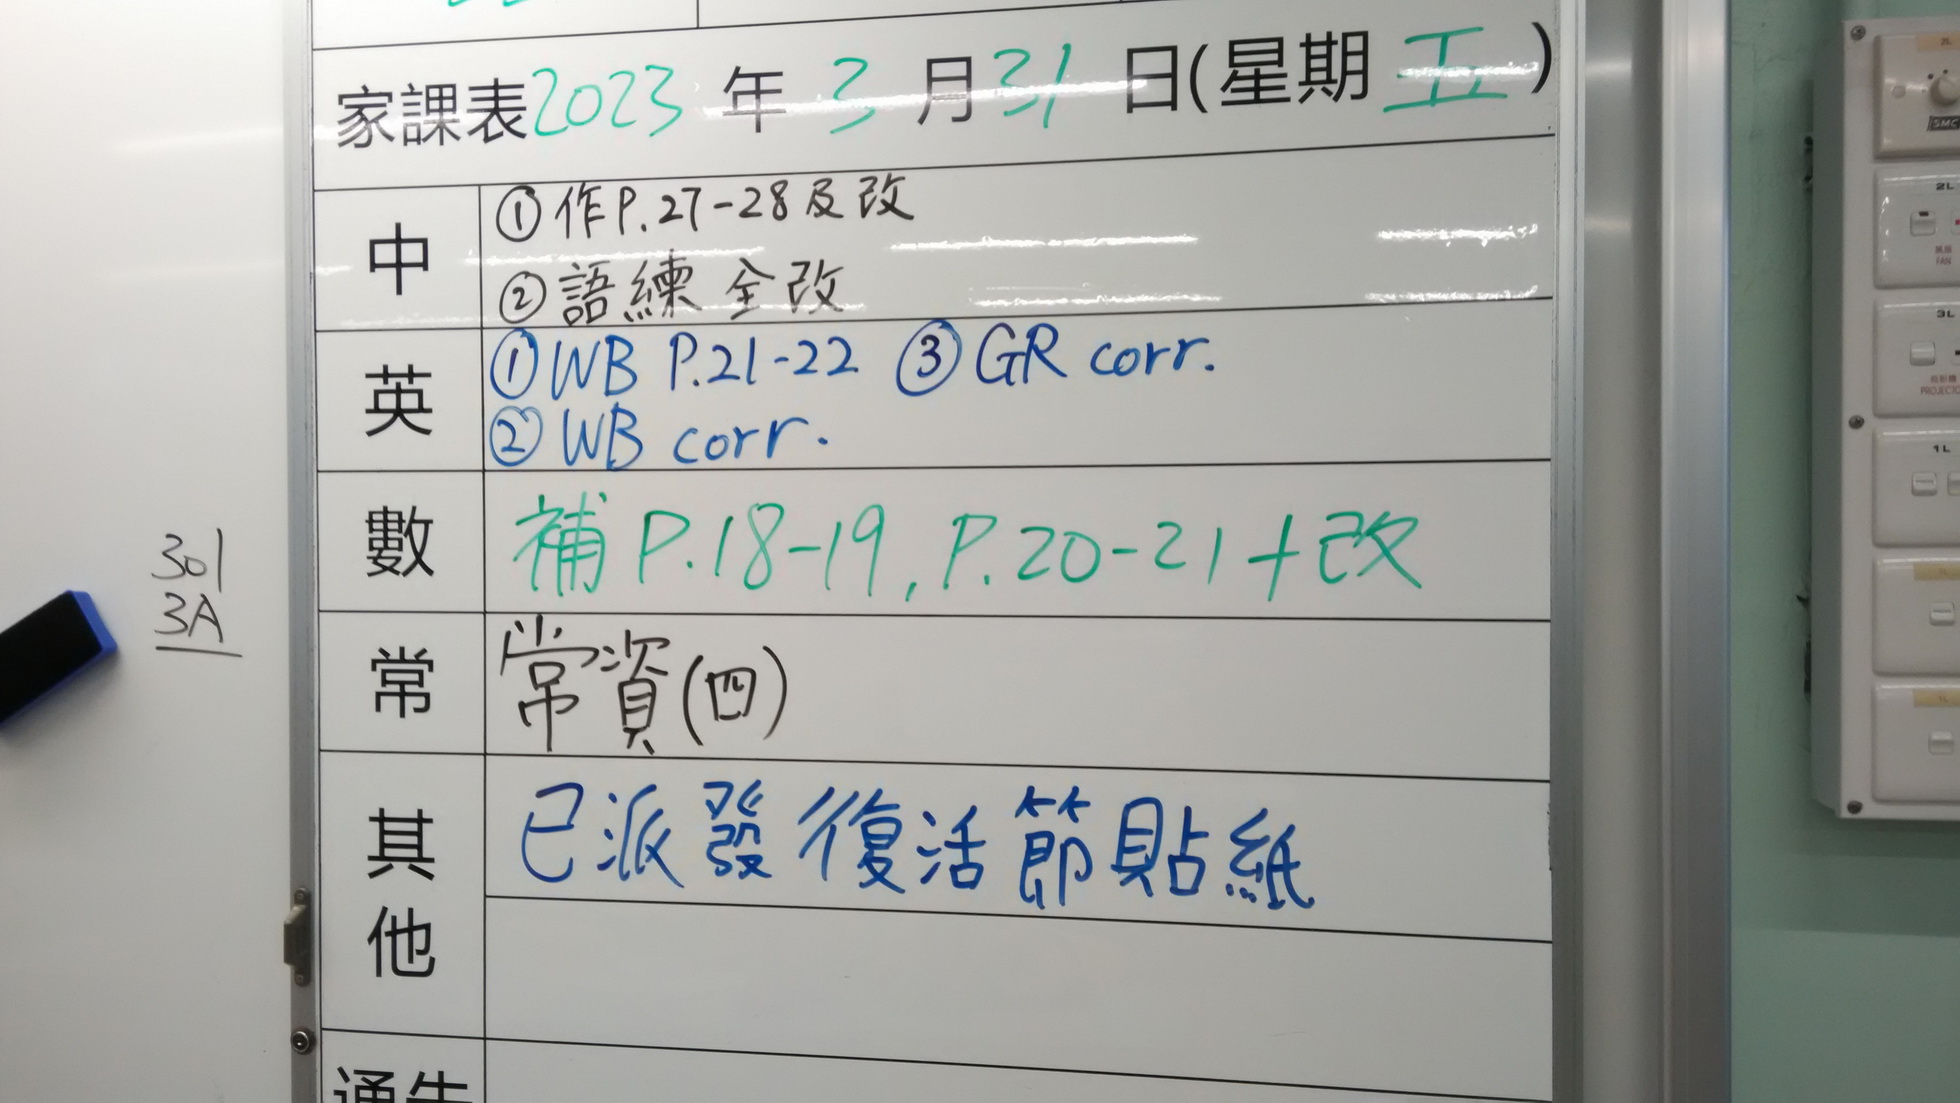 家課表2023年3月31日(星期五)
中
①作P.27-28及改
②語練全改
英
①WB P.21-22 ③GR corr.
②WB corr.
數
補P.18-19, P.20-21+改
常
常資(四)
其他
已派發復活節貼紙
通告
301
3A
2L
SMC
2L
風扇
FAN
3L
投影機
1L